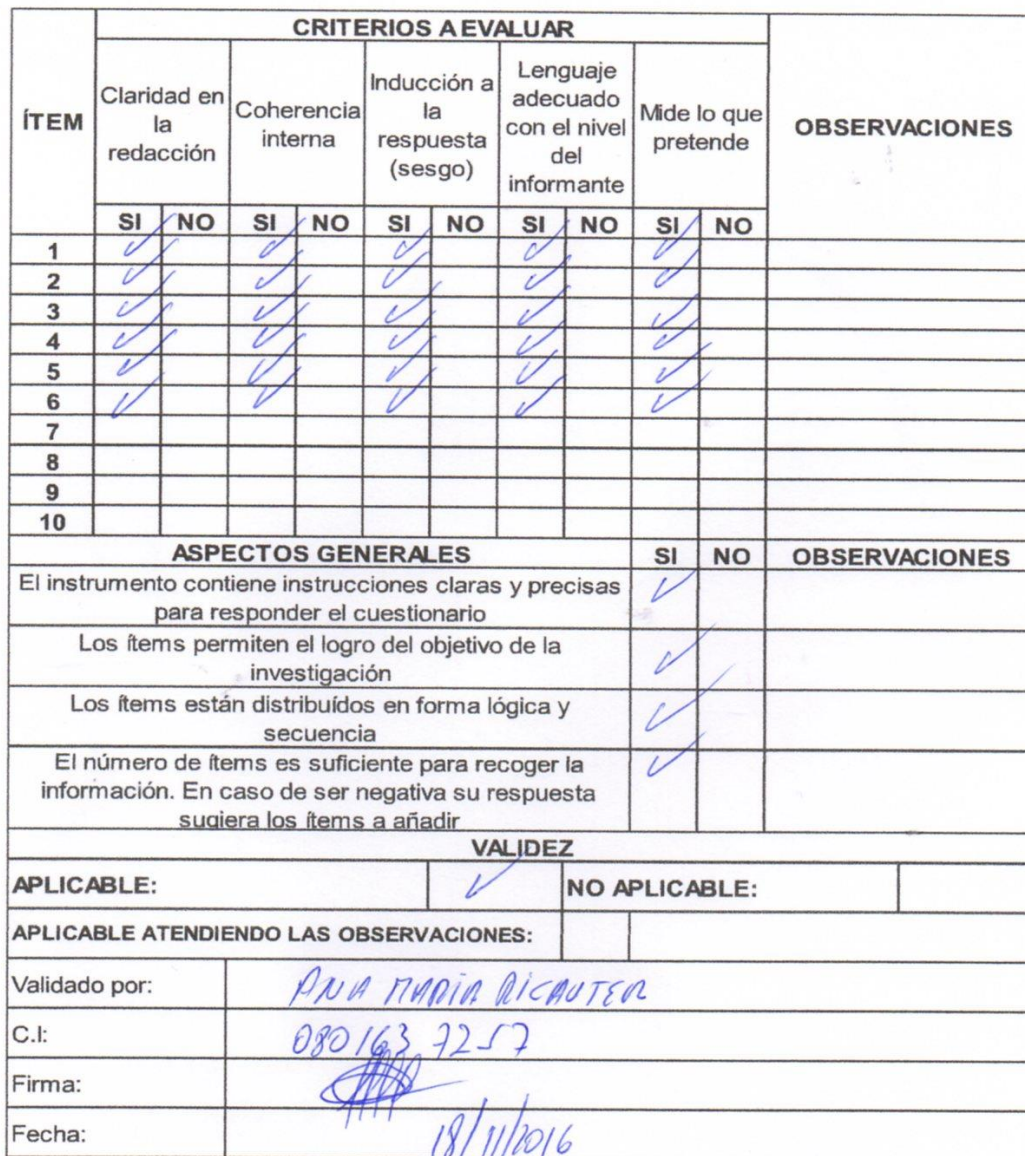 CRITERIOS A EVALUAR
ÍTEM
Claridad en
la
redacción
Coherencia
interna
Inducción a
la
respuesta
(sesgo)
Lenguaje
adecuado
con el nivel
del
informante
Mide lo que
pretende
OBSERVACIONES
SI NO SI NO SI NO SI NO SI NO
1 ✓ ✓ ✓ ✓ ✓
2 ✓ ✓ ✓ ✓ ✓
3 ✓ ✓ ✓ ✓ ✓
4 ✓ ✓ ✓ ✓ ✓
5 ✓ ✓ ✓ ✓ ✓
6 ✓ ✓ ✓ ✓ ✓
7
8
9
10
ASPECTOS GENERALES SI NO OBSERVACIONES
El instrumento contiene instrucciones claras y precisas ✓
para responder el cuestionario
Los ítems permiten el logro del objetivo de la ✓
investigación
Los ítems están distribuídos en forma lógica y ✓
secuencia
El número de ítems es suficiente para recoger la ✓
información. En caso de ser negativa su respuesta
sugiera los ítems a añadir
VALIDEZ
APLICABLE: ✓ NO APLICABLE:
APLICABLE ATENDIENDO LAS OBSERVACIONES:
Validado por: ANA MARÍA
C.I: 080163 7257
Firma:
Fecha: 18/11/2016